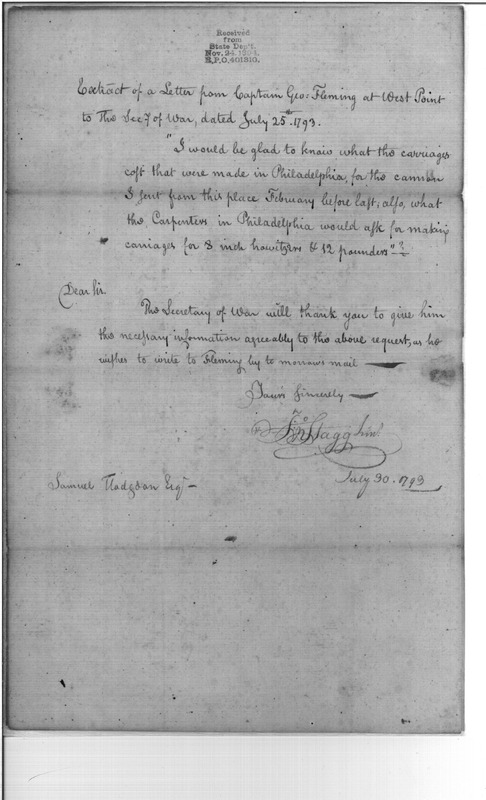 Received
from
State Dep't.
Nov. 24, 1894.
R.P.O. 401810.
Extract of a Letter from Captain Geo: Fleming at West Point
to The Secy of War, dated July 25th 1793.
"I would be glad to know what the carriages
cost that were made in Philadelphia, for the cannon
I sent from this place February before last; also, what
the Carpenters in Philadelphia would ask for making
carriages for 8 inch howitzers & 12 pounders"
Dear Sir
The Secretary of War will thank you to give him
the necessary information agreeably to the above request, as he
wishes to write to Fleming by to morrows mail
Yours Sincerely
Jno Stagg Junr.
July 30. 1793
Samuel Hodgdon Esqr